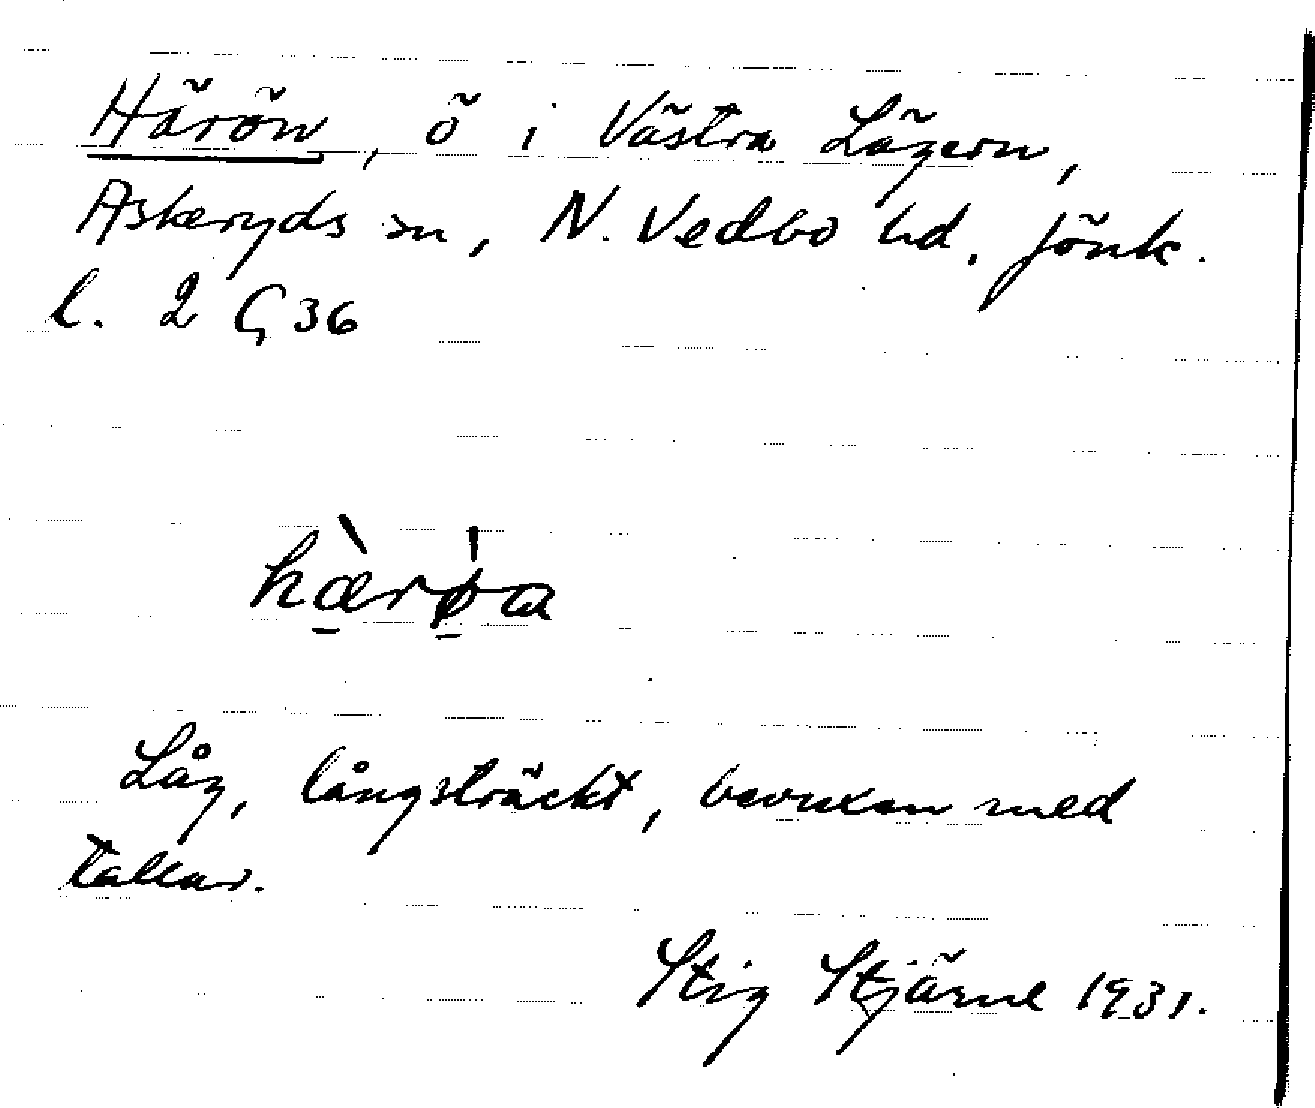 Härön, ö i Västra Lägern,
Askeryds sn, N. Vedbo hd. Jönk.
l. 2 G 36
hæ̀rø̍a
Låg, långsträckt, bevuxen med
tallar.
Stig Stjärne 1931.